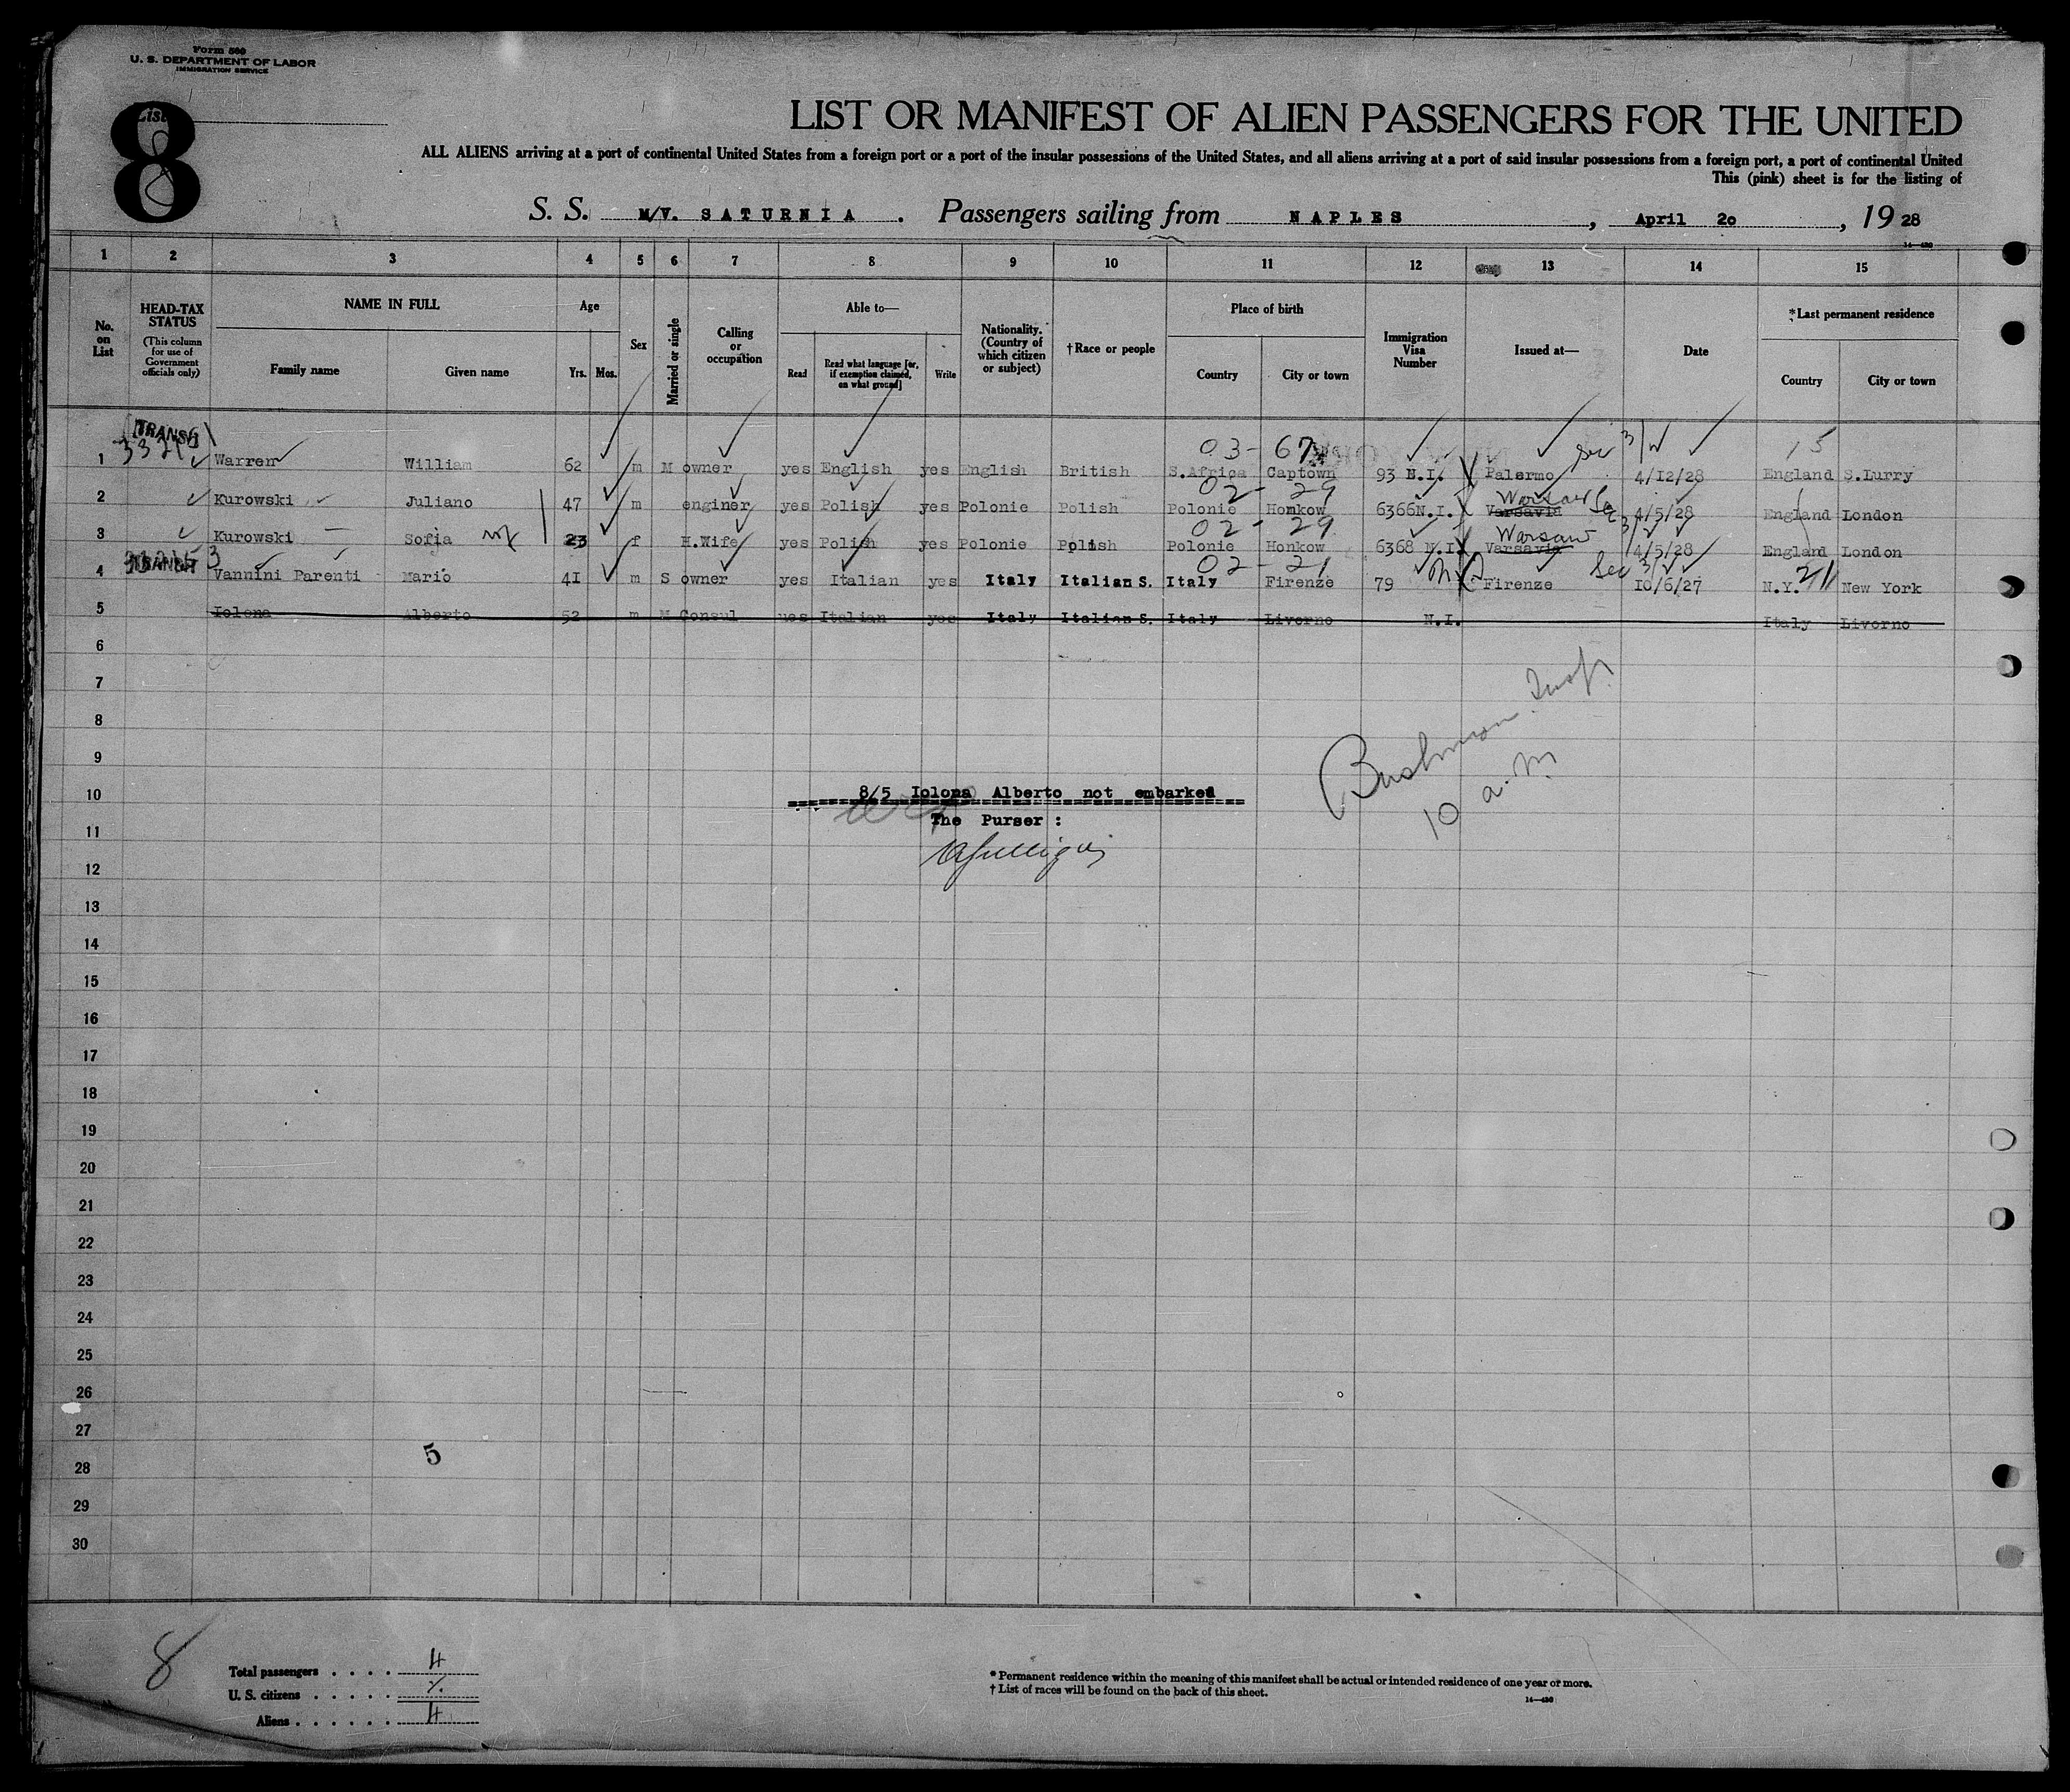 Form 500
U. S. DEPARTMENT OF LABOR
IMMIGRATION SERVICE
List
8
8
LIST OR MANIFEST OF ALIEN PASSENGERS FOR THE UNITED
ALL ALIENS arriving at a port of continental United States from a foreign port or a port of the insular possessions of the United States, and all aliens arriving at a port of said insular possessions from a foreign port, a port of continental United
This (pink) sheet is for the listing of
S. S. M/V. SATURNIA. Passengers sailing from NAPLES, April 2o, 19 28
14—430
1 2 3 4 5 6 7 8 9 10 11 12 13 14 15
No. on List
HEAD-TAX STATUS (This column for use of Government officials only)
NAME IN FULL
Family name Given name
Age
Yrs. Mos.
Sex
Married or single
Calling or occupation
Able to—
Read Read what language [or, if exemption claimed, on what ground] Write
Nationality. (Country of which citizen or subject)
†Race or people
Place of birth
Country City or town
Immigration Visa Number
Issued at—
Date
*Last permanent residence
Country City or town
TRANSIT 03-67 Sec 3/ 15
1 Warren William 62 m M owner yes English yes English British S.Africa Captown 93 N.I. Palermo 4/12/28 England S.Lurry
02-29 Warsaw
2 Kurowski Juliano 47 m enginer yes Polish yes Polonie Polish Polonie Honkow 6366N.I. Varsavia 4/5/28 England London
02-29 Warsaw
3 Kurowski Sofia 23 f H.Wife yes Polish yes Polonie Polish Polonie Honkow 6368 N.I. Varsavia 4/5/28 England London
TRANSIT 02-21 Sec 3/
4 Vannini Parenti Mario 41 m S owner yes Italian yes Italy Italian S. Italy Firenze 79 Firenze 10/6/27 N.Y. 21 New York
5 Iolona Alberto 52 m M Consul yes Italian yes Italy Italian S. Italy Livorno N.I. Italy Livorno
6
7
8
9
Bushman Insp.
10 a.m
10 8/5 Iolona Alberto not embarked
The Purser :
11
12
13
14
15
16
17
18
19
20
21
22
23
24
25
26
27
5
28
29
30
8
Total passengers . . . . 4
U. S. citizens . . . . .
Aliens . . . . . . 4
* Permanent residence within the meaning of this manifest shall be actual or intended residence of one year or more.
† List of races will be found on the back of this sheet.
14—430